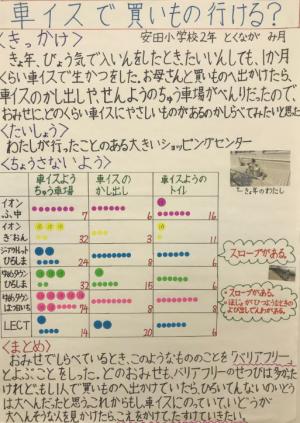 車イスで買いもの行ける?
安田小学校2年 とくなが み月
<きっかけ>
きょ年、びょう気で入いんをしたとき、たいいんしても、1か月
くらい車イスで生かつをした。お母さんと買いもの出かけたら、
車イスのかし出しや、せんようのちゅう車場がべんりだったので、
おみせに、どのくらい車イスにやさしいものがあるのかしらべてみたいと思った
<たいしょう>
わたしが行ったことのある大きいショッピングセンター
<ちょうさないよう>
きょ年のわたし
車イスよう ちゅう車場 車イスの かし出し 車イスようの トイレ
イオン ふ中 7 6 16
イオン ぎおん 32 3 11
ひろしま 24 8
ゆめタウン ひろしま 32 15 6
ゆめタウン はつかいち 74 8
LECT 14 20 6
スロープがある。
スロープがある。
<まとめ>
おみせでしらべているとき、このようなもののことを「バリアフリー」
とよぶことをしった。どのおみせも、バリアフリーのせつびは多かった
けれど、もし1人で買いものへ出かけていたら、ひろいてんないのいどう
は大へんだったと思う。これからもし車イスにのっていて、いどうが
大へんそうな人を見かけたら、こえをかけて、たすけていきたい。